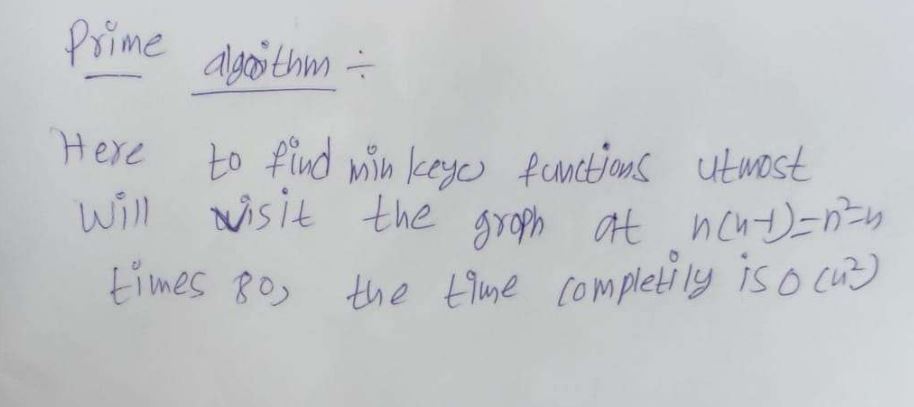 Prime algoithm ÷
Here to find min keyc) functions utmost
Will visit the graph at n(n-1)=n²-n
times so, the time completily is O(n²)